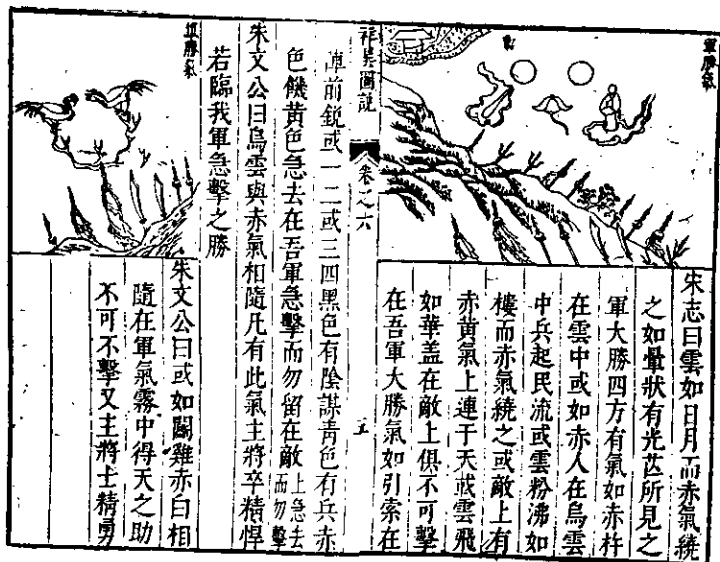 軍勝氣
宋志曰雲如日月而赤氣繞
之如暈狀有光芒所見之
軍大勝四方有氣如赤杵
在雲中或如赤人在烏雲
中兵起民流或雲粉沸如
樓而赤氣繞之或敵上有
赤黃氣上連于天或雲飛
如華盖在敵上俱不可擊
在吾軍大勝氣如引索在
祥異圖說 卷之六 五
陣前銳或一二或三四黑色有陰謀青色有兵赤
色饑黃色急去在吾軍急擊而勿留在敵上急去而勿擊
朱文公曰烏雲與赤氣相隨凡有此氣主將卒精悍
若臨我軍急擊之勝
軍勝氣
朱文公曰或如鬬雞赤白相
隨在軍氣霧中得天之助
不可不擊又主將士精勇